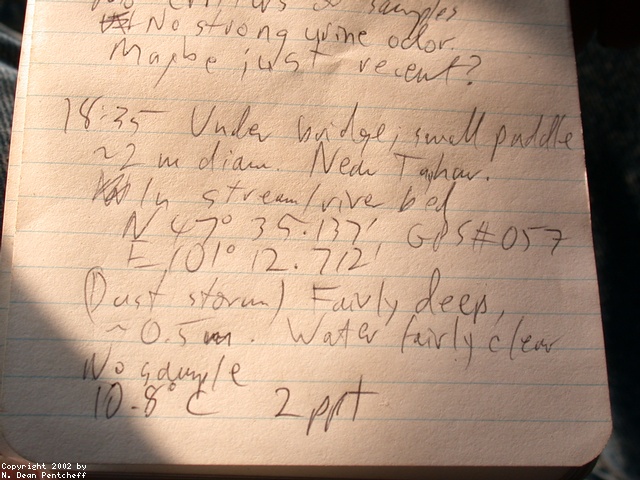 No critters so samples
No strong urine odor.
Maybe just recent?
18:35 Under bridge; small puddle
~2 m diam. Near Taghar.
In stream/river bed
N 47° 35.137' GPS#057
E 101° 12.712'
(Dust storm) Fairly deep,
~0.5m. Water fairly clear
No sample
10.8°C 2ppt
Copyright 2002 by
N. Dean Pentcheff